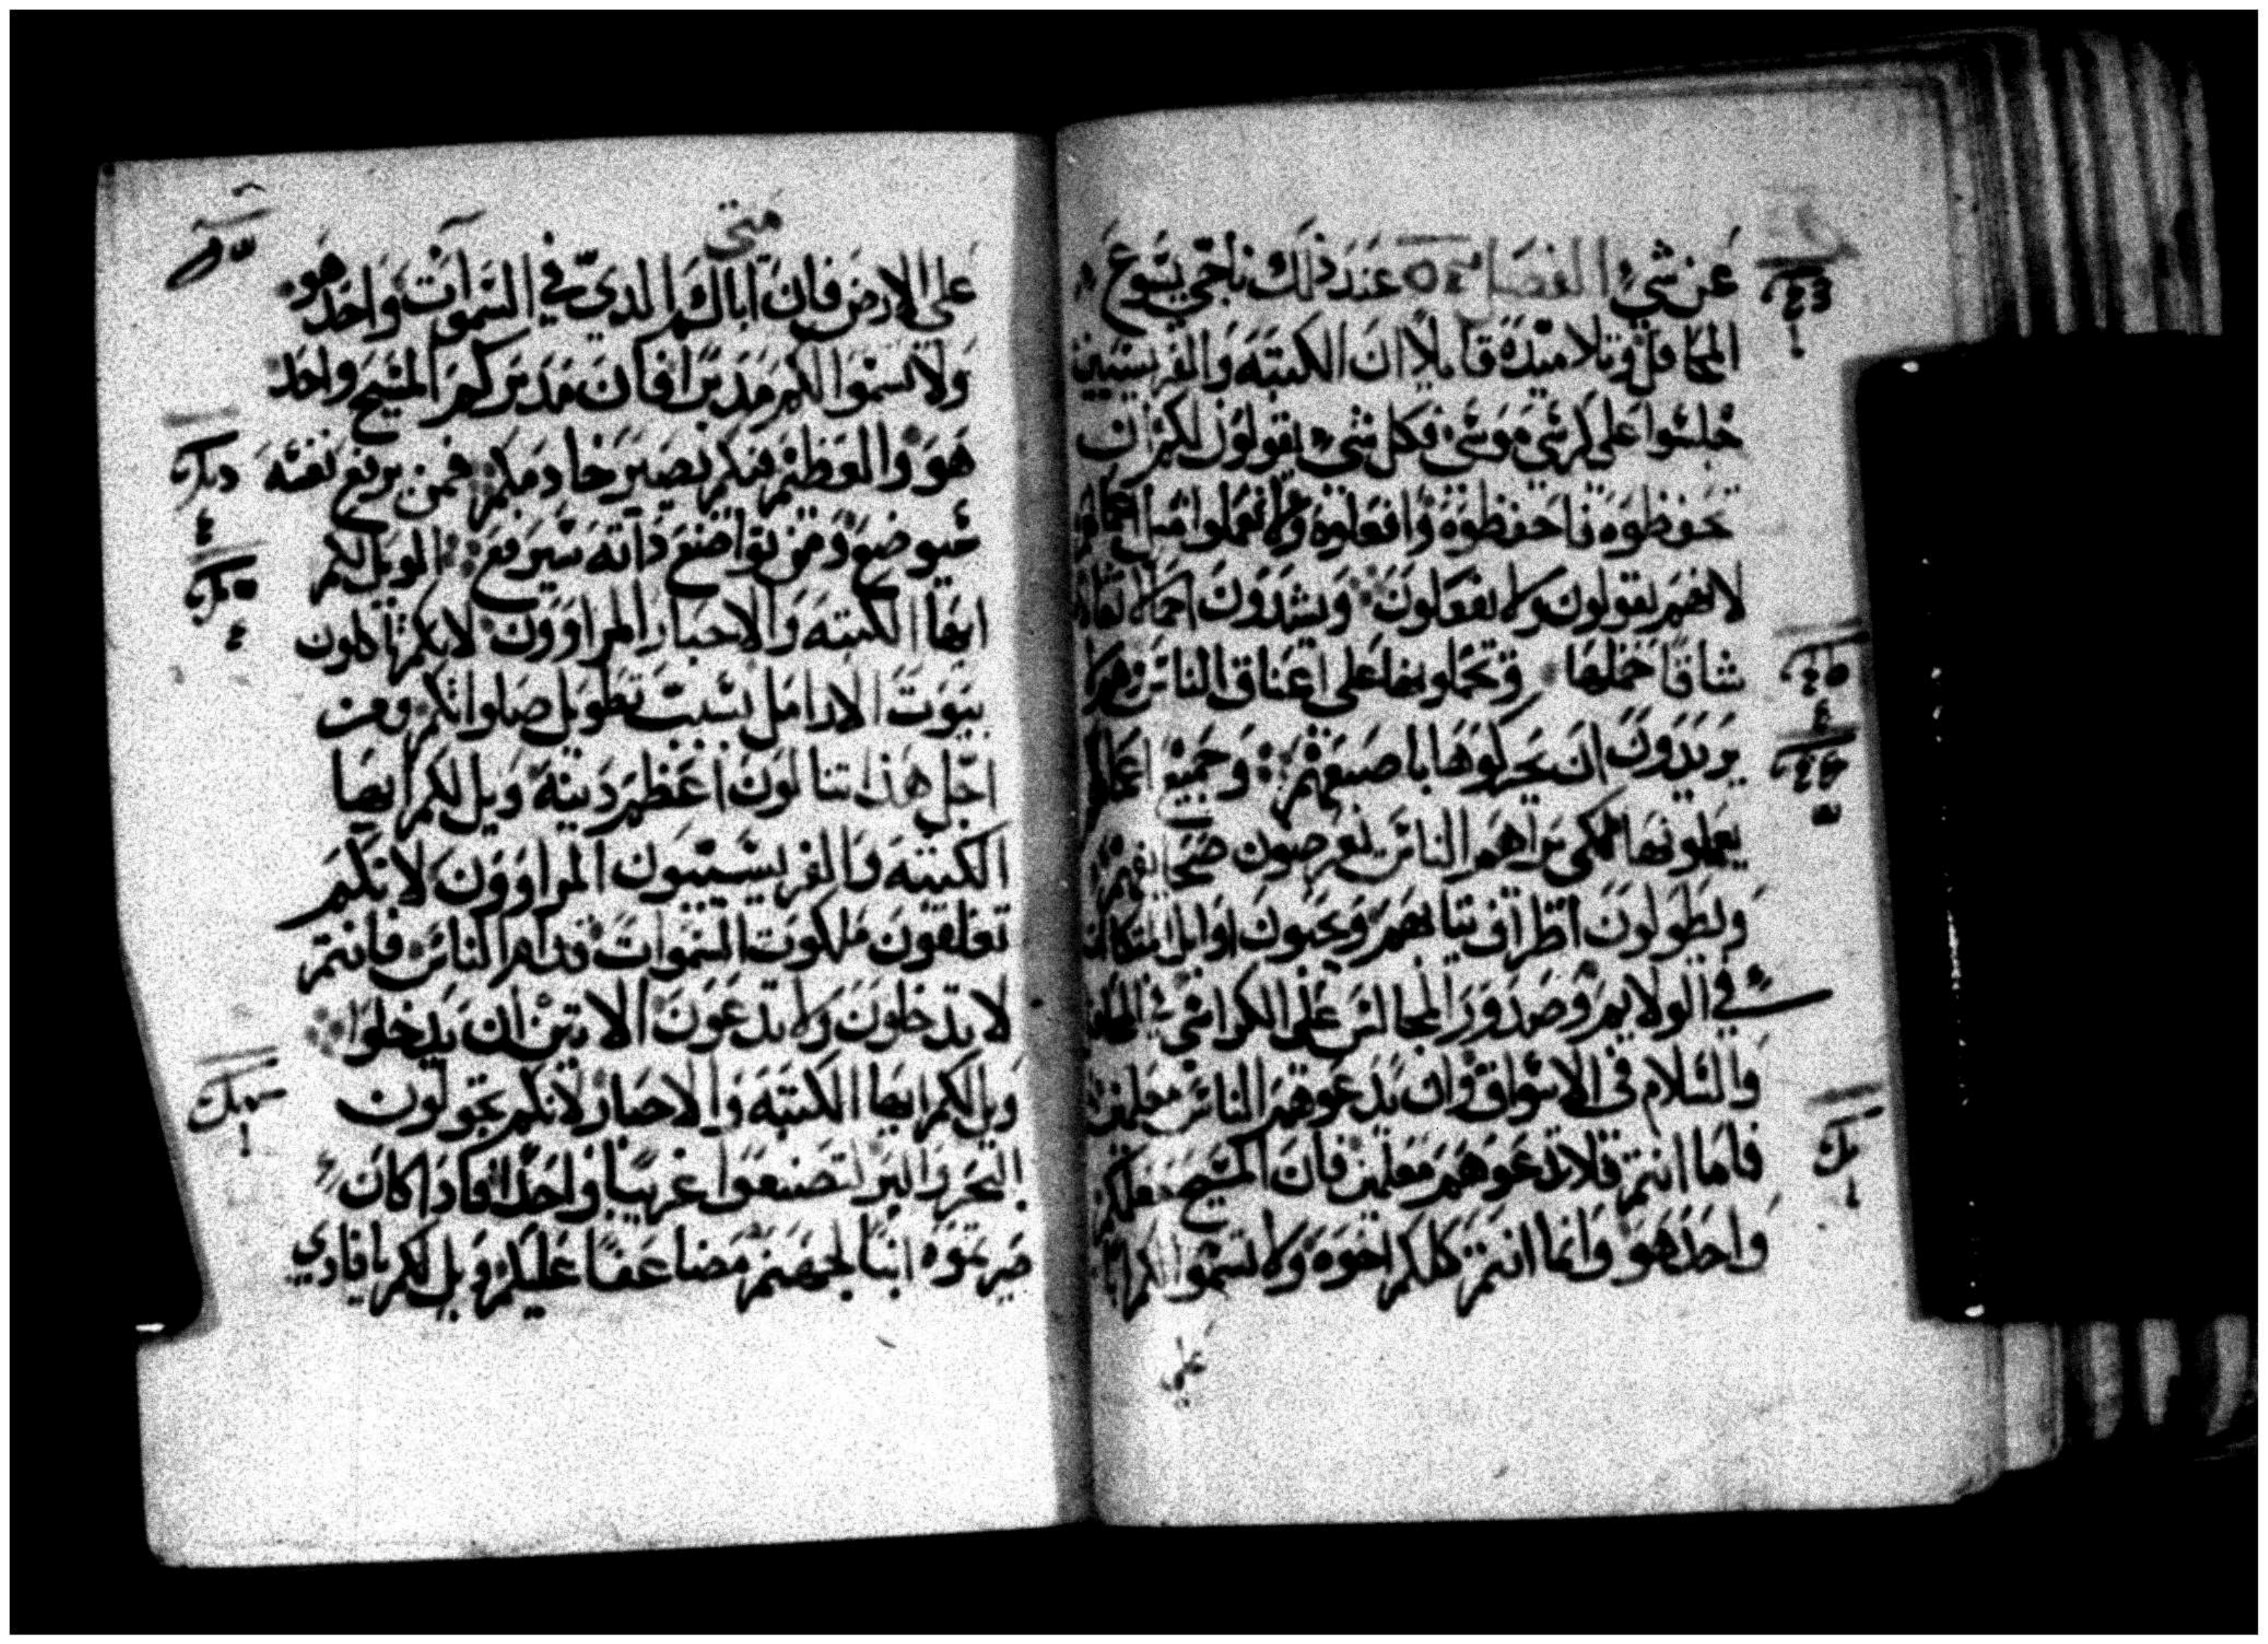 عن شيء الفصل عند ذلك ناجي يسوع
المحافل وتلاميذه قايلا ان الكتبه والفريسيين
جلسوا على كرسي موسى فكل شي يقولون لكم ان
تحفظوه فاحفظوه وافعلوه ولا تعملوا مثل اعمالهم
لانهم يقولون ولا يفعلون ويشدون احمالا ثقالا
شاقا حملها ويحملونها على اعناق الناس وهم لا
يريدون ان يحركوها باصبعهم وجميع اعمالهم
يعملونها لكي يراهم الناس يعرضون صحايفهم
ويطولون اطراف ثيابهم ويحبون اوايل المتكات
في الولايم وصدور المجالس على الكراسي في المحافل
والسلام في الاسواق وان يدعوهم الناس معلمين
فاما انتم فلا تدعوهم معلمين فان المسيح معلمكم
واحد هو وانما انتم كلكم اخوه ولا تسموا لكم ابا
على
متى
على الارض فان اباكم الدي في السموات واحد هو
ولا تسموا لكم مدبرا فان مدبركم المسيح واحد
هو والعظيم فيكم يصير خادمكم فمن يرفع نفسه
سيوضع ومن تواضع داته سيرفع الويل لكم
ايها الكتبه والاحبار المراوون لانكم تاكلون
بيوت الارامل بسبب تطويل صلواتكم ومن
اجل هذا تنالون اعظم دينه ويل لكم ايها
الكتبه والفريسيون المراوون لانكم
تغلقون ملكوت السموات قدام الناس فانتم
لا تدخلون ولا تدعون الاتين ان يدخلوا
ويل لكم ايها الكتبه والاحبار لانكم تجولون
البحر والبر لتصنعوا غريبا واحدا فادا كان
صيرتموه ابنا لجهنم مضاعفا عليكم ويل لكم يا قادي